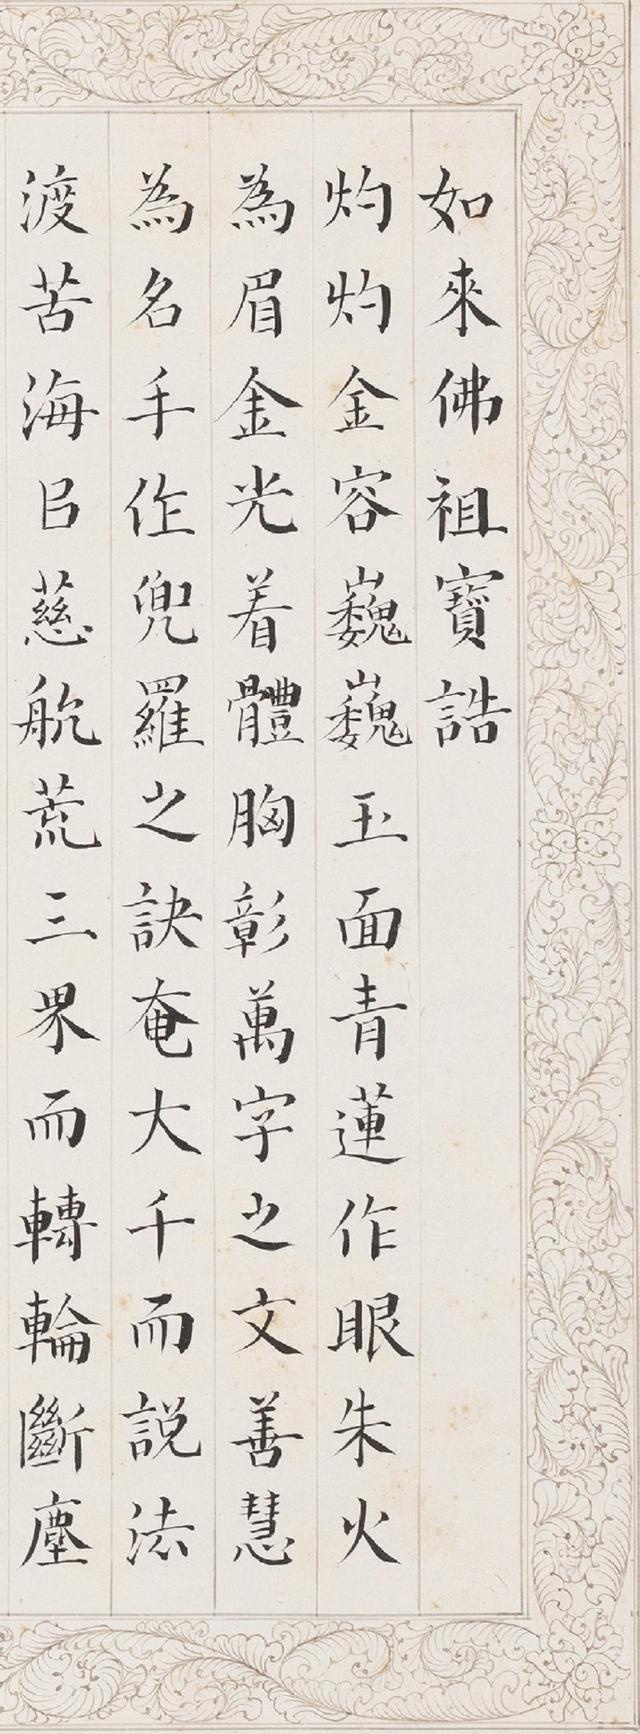 如來佛祖寶誥
灼灼金容巍巍玉面青蓮作眼朱火
為眉金光着體胸彰萬字之文善慧
為名手作兜羅之訣奄大千而說法
渡苦海㠯慈航荒三界而轉輪斷塵